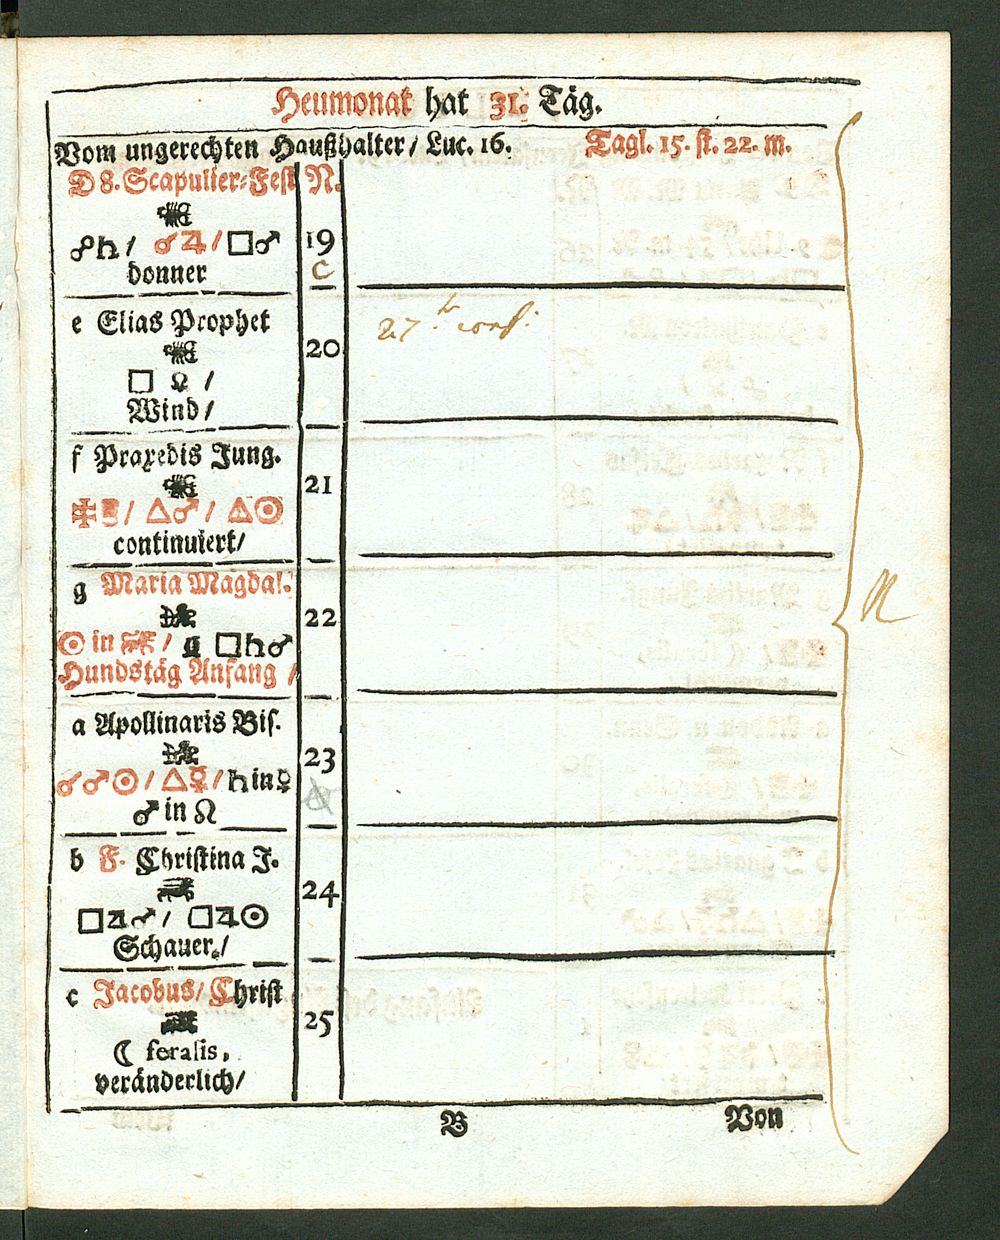 Heumonat hat 31. Täg.
Vom ungerechten Haußhalter / Luc. 16. Tagl. 15. st. 22. m.
D 8. Scapulier-Fest N.
☍♄ / ☌♃ / □♂ 19
donner C
e Elias Prophet
20
□ ☊ /
Wind /
f Praxedis Jung.
21
△♂ / △☉
continuiert /
g Maria Magdal.
22
☉ in ♌ / □♄♂
Hundstäg Anfang /
a Apollinaris Bis.
23
☌♂☉ / △☿ / ♄ in
♂ in ♌
b F. Christina J.
24
□♃♂ / □♃☉
Schauer. /
c Jacobus / Christ
25
☾ feralis,
veränderlich /
B Von
27